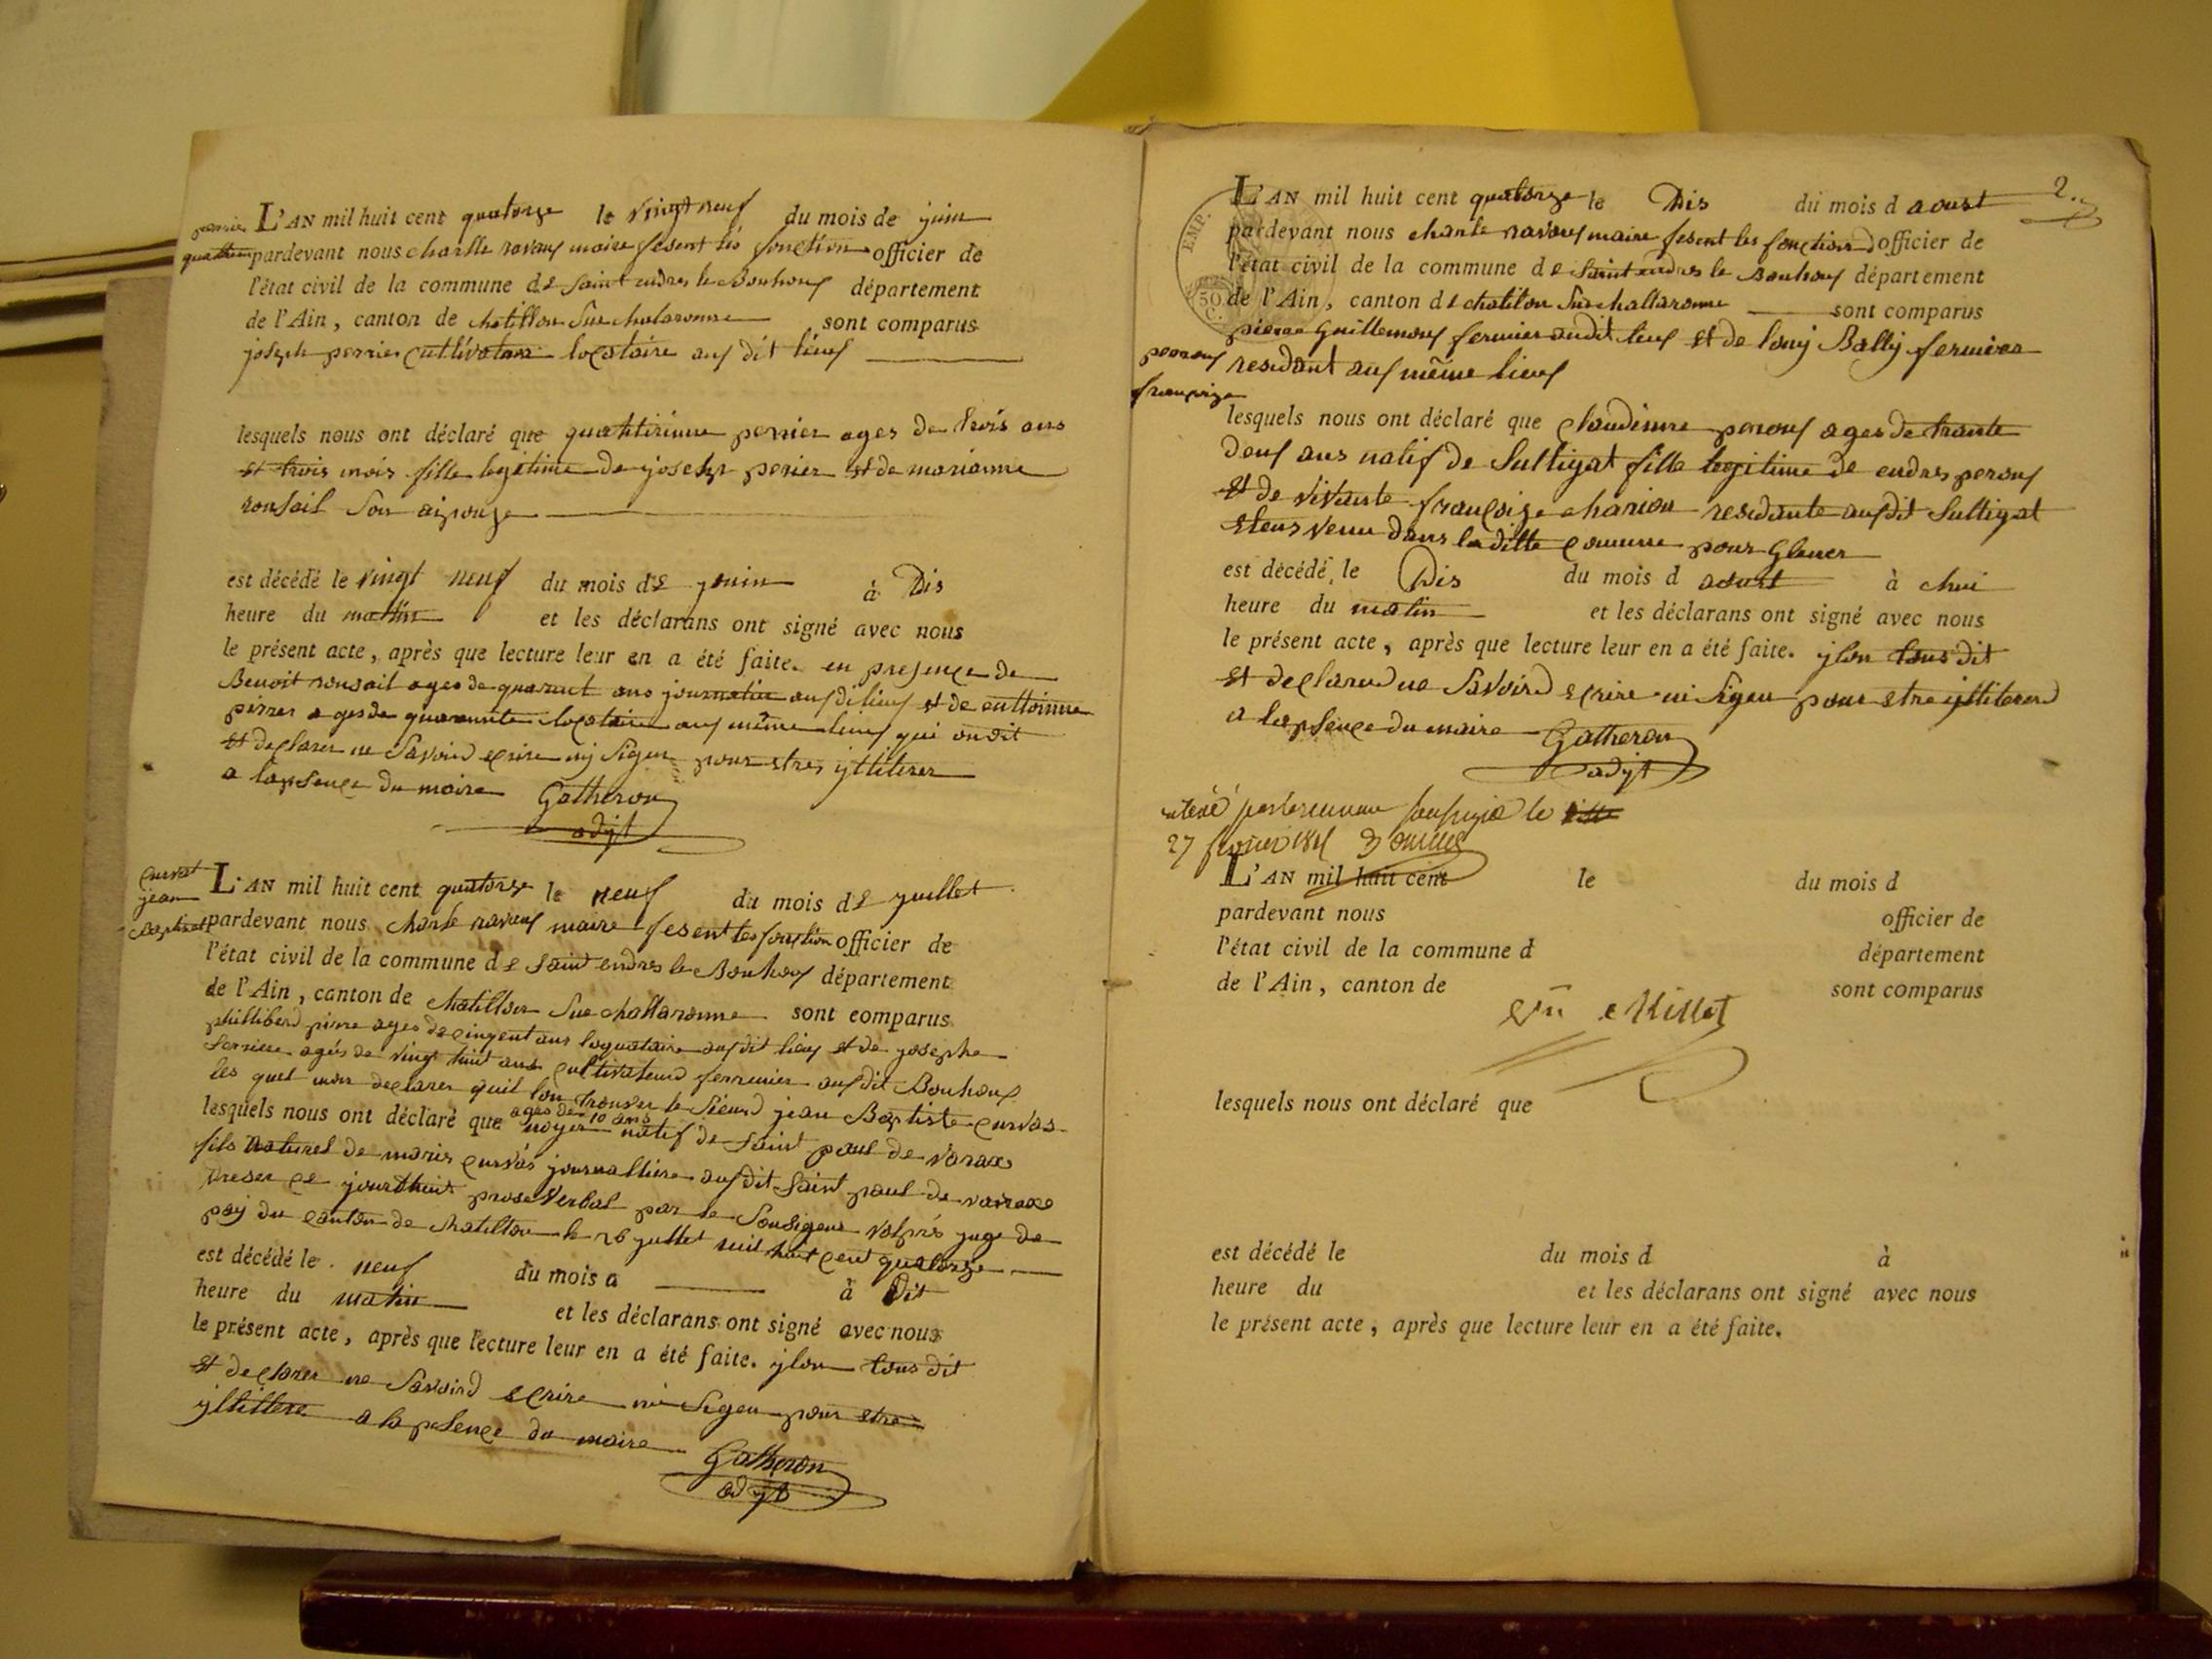 perrier
quatherin
L'AN mil huit cent quatorze le vingt neuf du mois de juin
pardevant nous charlle ravoux maire fesent les fonction officier de
l'état civil de la commune de saint endres le Bouhoux département
de l'Ain, canton de chatillon sue chalaronne sont comparus
joseph perrier cultivateur locataire aux dit lieux
lesquels nous ont déclaré que quattirinne perrier ages de trois ans
et trois mois fille legitime de joseph perier et de marianne
ronsail son aipouze
est décédé le vingt neuf du mois de jouin à Dis
heure du matin et les déclarans ont signé avec nous
le présent acte, après que lecture leur en a été faite. en presence de
Benoit ronsail ages de quarant ans journalie aux di lieux et de enttoinne
pirrer ages de quarante locataire aux même lieux qui on dit
et declarer ne savoird ecrire nij signer pour estres ijlliterer
a lapsence du maire Gatheron
adjt
Curvat
jean
Baptiset
L'AN mil huit cent quatorze le neuf du mois de juillet
pardevant nous charle ravoux maire fesent les fonction officier de
l'état civil de la commune de saint endres le Bouhoux département
de l'Ain, canton de chatillon sue challaronne sont comparus
philliberd pirre ages de cinqent ans loquataire aux dit lieux et de josephe
agés de vingt huit ans cultivateurd fermier aux dit Bouhoux
les quel nous declarer quil lon trouver le sieurd jean Baptiste curvas
ages de 10 ans
lesquels nous ont déclaré que noyer natif de saint paul de varax
fils naturel de marie curvas journalliere aux dit saint paul de varraxe
dreser ce jourdhuit prose verbal par le sousigner valprés juge de
paij du canton de chatillon le 26 jullet mil huit cent quatorze
est décédé le neuf du mois a à Dit
heure du matin et les déclarans ont signé avec nous
le présent acte, après que lecture leur en a été faite. ijlon tous dit
et declarer ne savoird ecrire ni signer pour etre
ijllittere a lapsence du maire Gatheron
adjt
2.
EMP.
50
C.
L'AN mil huit cent quatorze le Dis du mois d aoust
pardevant nous charle ravoux maire fesent les fonctiond officier de
l'état civil de la commune de saint endres le Bouhoux département
de l'Ain, canton de chatilon sue challaronne sont comparus
pierre Guillemoux fermier audit lieux et de louij Ballij fermier
residant aux même lieux
peroux
françoize
lesquels nous ont déclaré que claudinne peroux ages de trante
deux ans natif de sulligat fille legitime de endres peroux
et de vivante françoize charion residante aux dit sulligat
etens venu dans la ditte comune pour glener
est décédé le Dis du mois d aoust à chui
heure du matin et les déclarans ont signé avec nous
le présent acte, après que lecture leur en a été faite. ijlon tous dit
et declarerd ne savoird ecrire ni signer pour etre ijlliterer
a lapsence du maire Gatheron
adjt
le
27 fevrier
L'AN mil huit cent le du mois d
pardevant nous officier de
l'état civil de la commune d département
de l'Ain, canton de sont comparus
Millet
lesquels nous ont déclaré que
est décédé le du mois d à
heure du et les déclarans ont signé avec nous
le présent acte, après que lecture leur en a été faite.